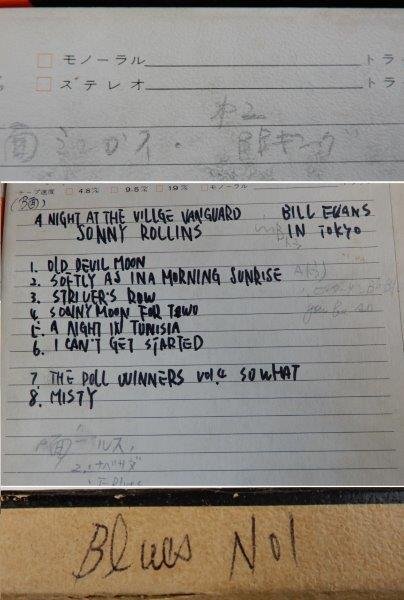 □ モノーラル
トラ
□ ステレオ
トラ
面
テープ速度 □ 4.8 □ 9.5 □ 19 □ モノーラル
(B面)
A NIGHT AT THE VILLGE VANGUARD BILL EVANS
SONNY ROLLINS IN TOKYO
1. OLD DEVIL MOON
2. SOFTLY AS IN A MORNING SUNRISE
3. STRIVER'S ROW
4. SONNY MOON FOR TOWO
5. A NIGHT IN TUNISIA
6. I CAN'T GET STARTED
7. THE POLL WINNERS VOL.4 SO WHAT
8. MISTY
Blues No1